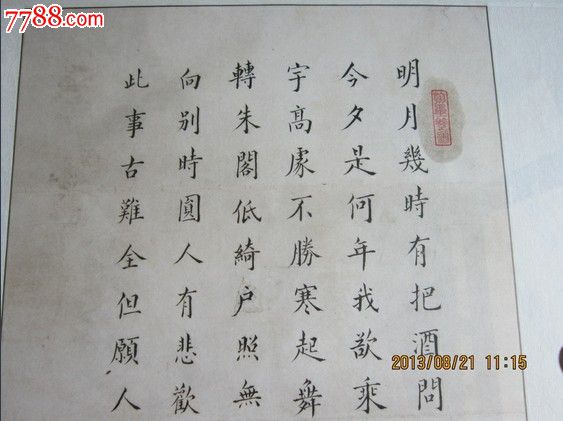 7788.com
明月幾時有把酒問
今夕是何年我欲乘
宇髙處不勝寒起舞
轉朱閣低綺户照無
向别時圓人有悲歡
此事古難全但願人
2013/08/21 11:15